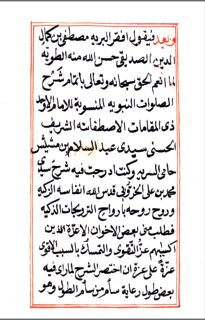 وبعد فيقول افقر البريه مصطفى بن كمال
الدين الصديقي حسن الله منه الطويه
لما انعم الحق سبحانه وتعالى باتمام شرح
الصلوات النبويه المنسوبة للامام الاوحد
ذى المقامات الاصطفائيه الشريف
الحسني سيدى عبد السلام بن مشيش
حامى السريه وكنت ادرجت فيه شرح سيدى
محمد بن على الخروبي قدس الله انفاسه الزكيه
وروح روحه بارواح الترويحات الذكيه
فطلب منى بعض الاخوان الاعزة الدين
اكسبهم عزا التقوى والتمسك بالسبب الاقوى
عزة على عزة ان اختصر الشرح لما راى فيه
بعض طول رعاية سآم من سآم الطول وهو